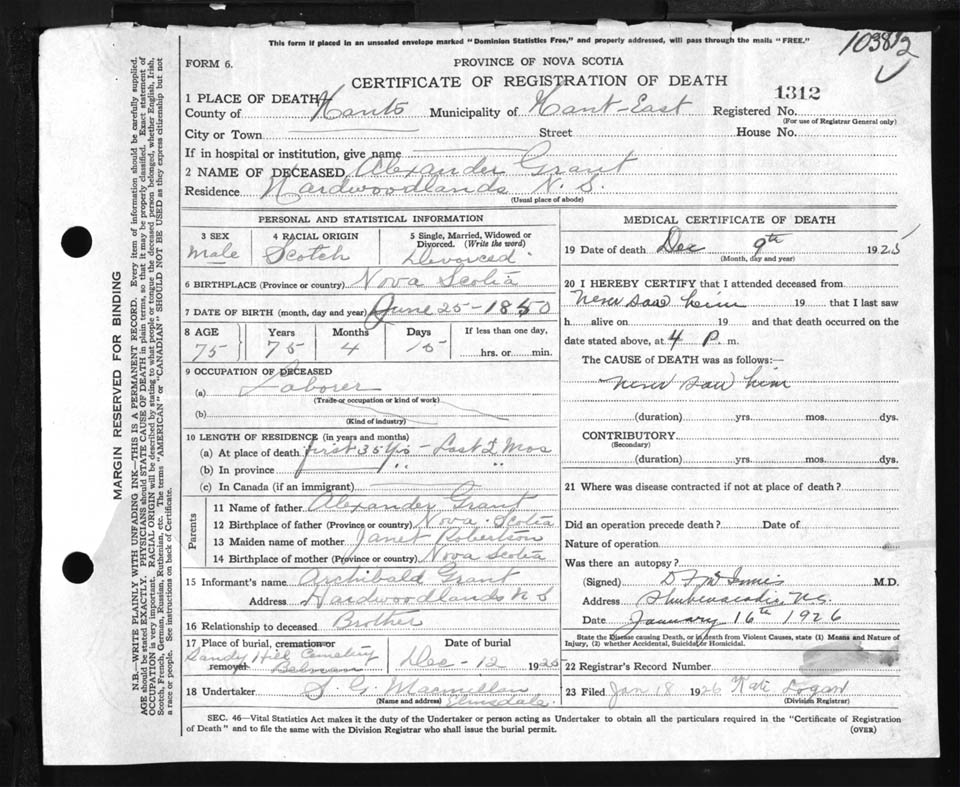 This form if placed in an unsealed envelope marked "Dominion Statistics Free," and properly addressed, will pass through the mails "FREE."
10382
FORM 6.
PROVINCE OF NOVA SCOTIA
CERTIFICATE OF REGISTRATION OF DEATH
1312
1 PLACE OF DEATH
County of Hants Municipality of Hant-East Registered No.
(For use of Registrar General only)
City or Town Street House No.
If in hospital or institution, give name
2 NAME OF DECEASED Alexander Grant
Residence Hardwoodlands N. S.
(Usual place of abode)
PERSONAL AND STATISTICAL INFORMATION
3 SEX 4 RACIAL ORIGIN 5 Single, Married, Widowed or Divorced. (Write the word)
Male Scotch Divorced
6 BIRTHPLACE (Province or country) Nova Scotia
7 DATE OF BIRTH (month, day and year) June 25-1850
8 AGE Years Months Days If less than one day,
75 75 4 15 hrs. or min.
9 OCCUPATION OF DECEASED
(a) Laborer
(Trade or occupation or kind of work)
(b)
(Kind of industry)
10 LENGTH OF RESIDENCE (in years and months)
(a) At place of death first 35 yrs - Last 2 Mos
(b) In province " "
(c) In Canada (if an immigrant)
Parents
11 Name of father Alexander Grant
12 Birthplace of father (Province or country) Nova Scotia
13 Maiden name of mother Janet Robertson
14 Birthplace of mother (Province or country) Nova Scotia
15 Informant's name Archibald Grant
Address Hardwoodlands N S
16 Relationship to deceased Brother
17 Place of burial, cremation or removal Date of burial
Sandy Hill Cemetery Dec - 12 1925
18 Undertaker J. G. Macmillan
(Name and address) Elmsdale
MEDICAL CERTIFICATE OF DEATH
19 Date of death Dec 9th 1925
(Month, day and year)
20 I HEREBY CERTIFY that I attended deceased from
never saw him 19 that I last saw
h alive on 19 and that death occurred on the
date stated above, at 4 P. m.
The CAUSE OF DEATH was as follows:—
never saw him
(duration) yrs. mos. dys.
CONTRIBUTORY
(Secondary)
(duration) yrs. mos. dys.
21 Where was disease contracted if not at place of death?
Did an operation precede death? Date of
Nature of operation
Was there an autopsy?
(Signed) D F McInnis M.D.
Address Shubenacadie, N.S.
Date January 16th 1926
State the Disease causing Death, or in death from Violent Causes, state (1) Means and Nature of Injury, (2) whether Accidental, Suicidal or Homicidal.
22 Registrar's Record Number
23 Filed Jan 18 1926 Kate Logan
(Division Registrar)
SEC. 46—Vital Statistics Act makes it the duty of the Undertaker or person acting as Undertaker to obtain all the particulars required in the "Certificate of Registration
of Death" and to file the same with the Division Registrar who shall issue the burial permit. (OVER)
MARGIN RESERVED FOR BINDING
N.B.—WRITE PLAINLY WITH UNFADING INK—THIS IS A PERMANENT RECORD. Every item of information should be carefully supplied.
AGE should be stated EXACTLY. PHYSICIANS should STATE CAUSE OF DEATH in plain terms, so that it may be properly classified. Exact statement of
OCCUPATION is very important. RACIAL ORIGIN will be described by stating to what people or tongue the deceased person belonged, whether English, Irish,
Scotch, French, German, Russian, Ruthenian, etc. The terms "AMERICAN" or "CANADIAN" SHOULD NOT BE USED as they express citizenship but not
a race or people. See instructions on back of Certificate.